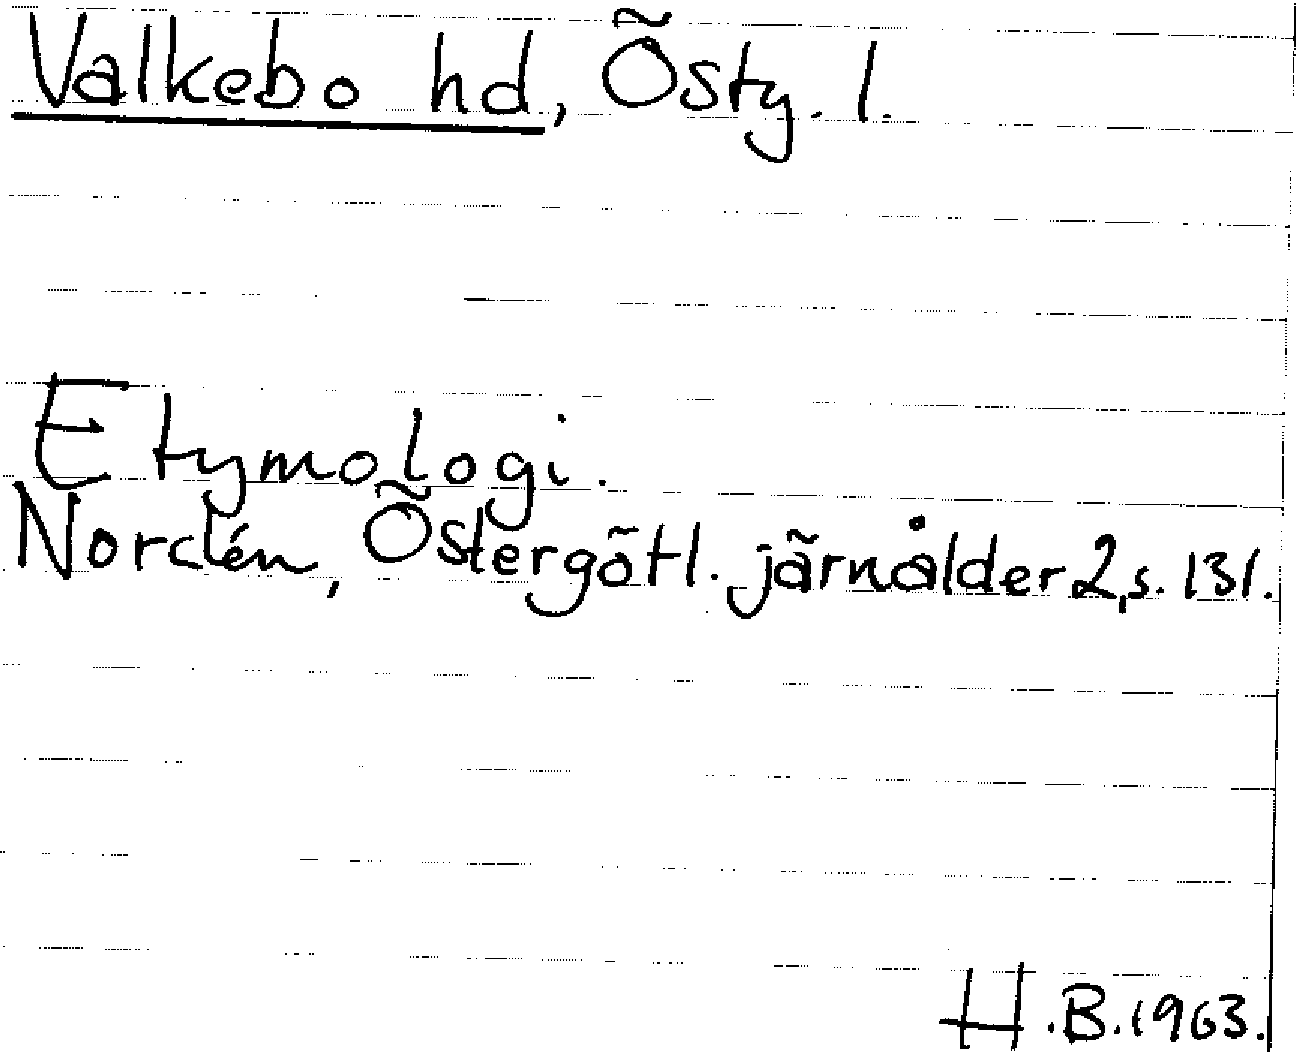 Valkebo hd, Östg. l.
Etymologi.
Nordén, Östergötl. järnålder 2, s. 131.
H.B. 1963.